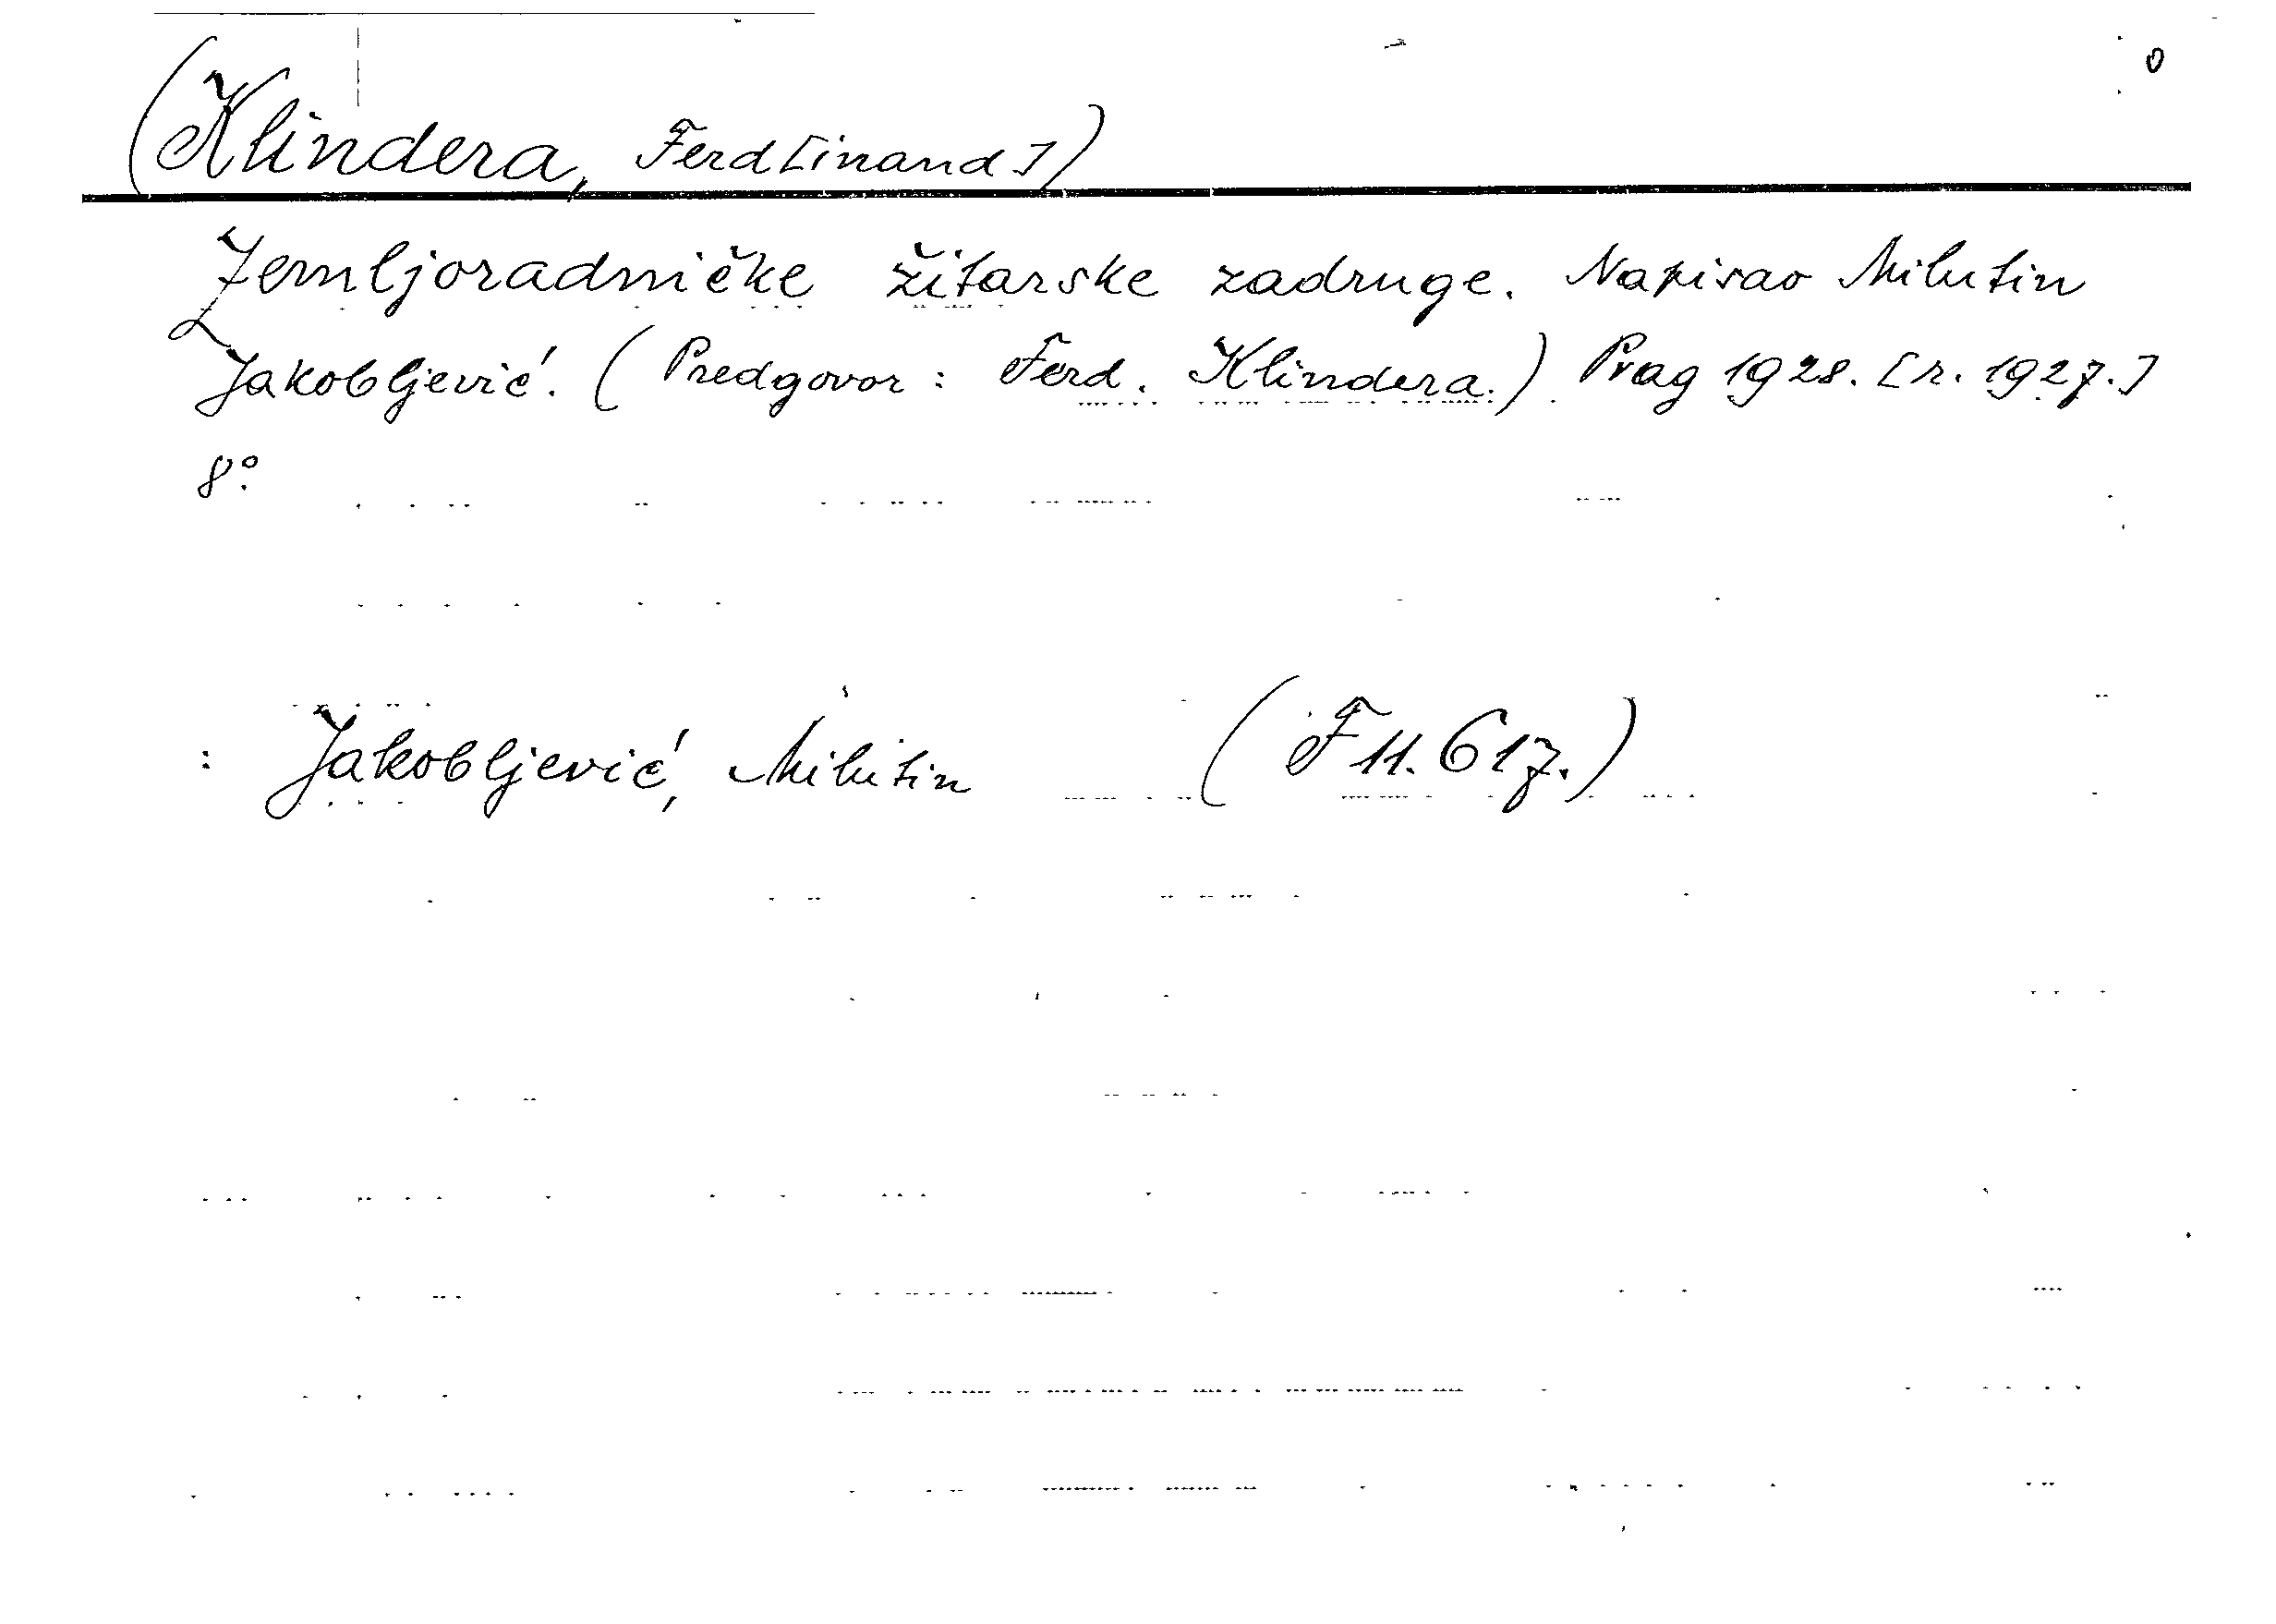 (Klindera, Ferd[inand])
Zemljoradničke žitarske zadruge. Napisao Milutin
Jakobljević. (Predgovor: Ferd. Klindera.) Prag 1928. [r. 1927.]
8°.
: Jakobljević, Milutin (F 11.617.)